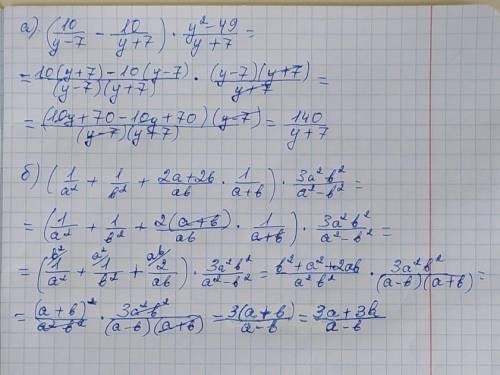 а) (10/(y-7) - 10/(y+7)) · (y²-49)/(y+7) =
= (10(y+7)-10(y-7))/((y-7)(y+7)) · ((y-7)(y+7))/(y+7) =
= ((10y+70-10y+70)(y-7))/((y-7)(y+7)) = 140/(y+7)
б) (1/a² + 1/b² + (2a+2b)/(ab) · 1/(a+b)) · (3a²b²)/(a²-b²) =
= (1/a² + 1/b² + (2(a+b))/(ab) · 1/(a+b)) · (3a²b²)/(a²-b²) =
= (b²/ 1/a² + a²/ 1/b² + ab/ 2/(ab)) · (3a²b²)/(a²-b²) = (b²+a²+2ab)/(a²b²) · (3a²b²)/((a-b)(a+b)) =
= (a+b)²/(a²b²) · (3a²b²)/((a-b)(a+b)) = (3(a+b))/(a-b) = (3a+3b)/(a-b)